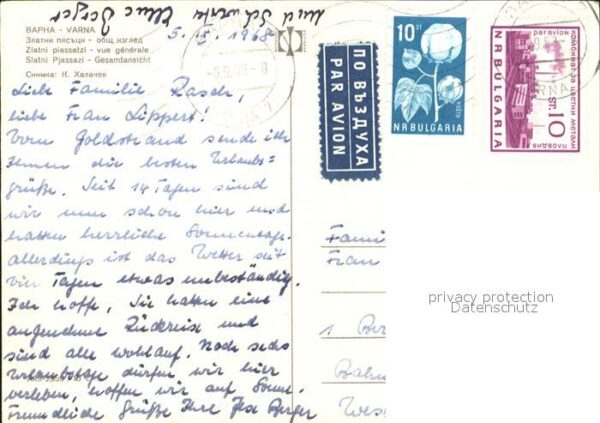 und Schwester Ellen Berger
5. IX. 1968
ВАРНА - VARNA
Златни пясъци - общ изглед
Zlatni piassatzi - vue générale
Slatni Pjassazi - Gesamtansicht
Снимка: К. Халачев
Liebe Familie Rasch,
liebe Frau Lippert!
Vom Goldstrand sende ich
Ihnen die besten Urlaubs=
grüße. Seit 14 Tagen sind
wir nun schon hier und
hatten herrliche Sonnentage.
Allerdings ist das Wetter seit
vier Tagen etwas unbeständig.
Ich hoffe, Sie hatten eine
angenehme Rückreise und
sind alle wohlauf. Noch sechs
Urlaubstage dürfen wir hier
verleben, hoffen wir auf Sonne.
Freundliche Grüße Ihre Berger
ПО ВЪЗДУХА
PAR AVION
10 СТ
NR BULGARIA
par avion
NR BULGARIA
st. 10
КОМБИНАТ ЗА ЦВЕТНИ МЕТАЛИ
ПЛОВДИВ
Famil
Frau
1 Ber
Bahn
Wes
privacy protection
Datenschutz